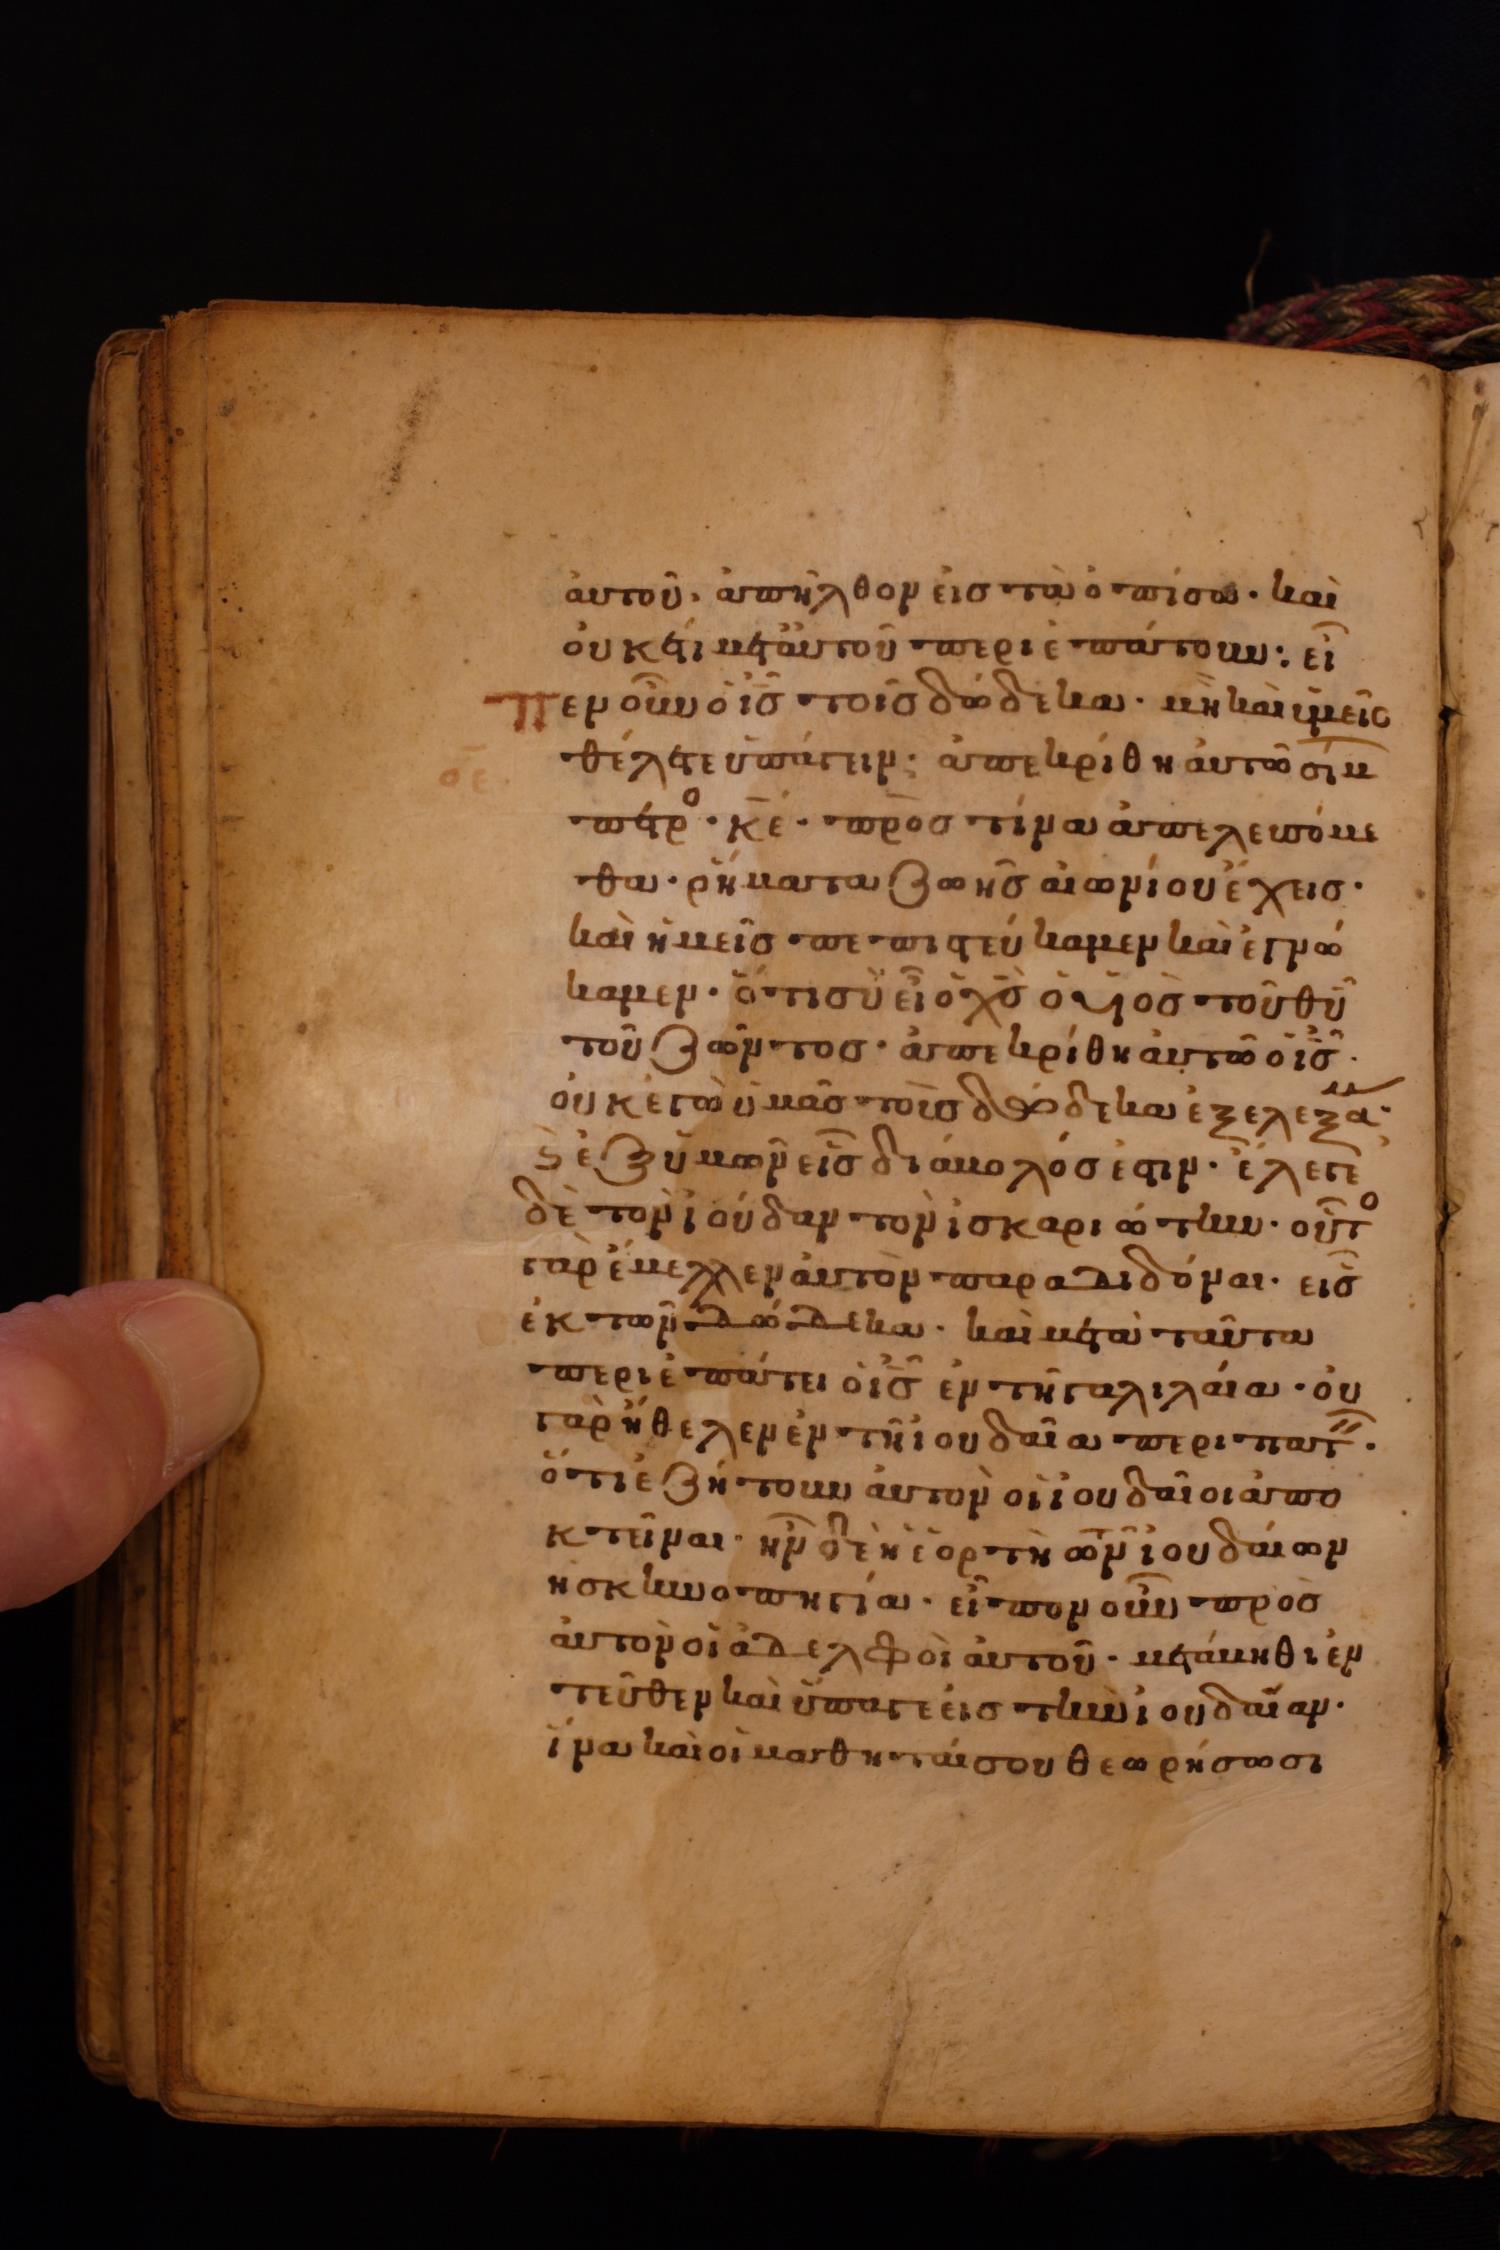 ἀυτοῦ· ἀπῆλθον ἐις τὰ ὀπίσω· καὶ
ὀυκέτι μετἀυτοῦ περιεπάτουν: εἶ
πεν οὖν ὁ ις̅ τοῖς δώδεκα· μὴ καὶ ὑμεῖς
οε̅
θέλετε ὑπάγειν; ἀπεκρίθη ἀυτῶ σίμ
πέτρο· κε̅· πρὸς τίνα ἀπελευσόμε
θα· ῥήματα ζωῆς αἰωνίου ἔχεις·
καὶ ἡμεῖς πεπιστεύκαμεν καὶ ἐγνώ
καμεν· ὅτι σὺ εἶ ὁ χς̅ ὁ υἱὸς τοῦ θυ̅
τοῦ ζῶντος· ἀπεκρίθη ἀυτῶ ὁ ις̅·
ὀυκ ἐγὼ ὑμᾶς τοὺς δώδεκα ἐξελεξάμ·
ϗ ἐξ ὑμῶν εἷς διάβολός ἐστιν· ἔλεγε
δὲ τὸν ἰούδαν τὸν ἰσκαριώτην· οὗτο
γὰρ ἔμελλεν ἀυτὸν παραδιδόναι· εἷς
ἐκ τῶν δώδεκα· καὶ μετὰ ταῦτα
περιεπάτει ὁ ις̅ ἐν τῆ γαλιλαία· ὀυ
γὰρ ἤθελεν ἐν τῆ ἰουδαία περιπατ·
ὅτι ἐζήτουν ἀυτὸν οἱ ἰουδαῖοι ἀπο
κτεῖναι· ἦν δὲ ἡ ἑορτὴ τῶν ἰουδαίων
ἡ σκηνοπηγία· εἶπον οὖν πρὸς
ἀυτὸν οἱ ἀδελφοὶ ἀυτοῦ· μετάβηθι ἐν
τεῦθεν καὶ ὕπαγε ἐις τὴν ἰουδαίαν·
ἵνα καὶ οἱ μαθηταί σου θεωρήσωσι